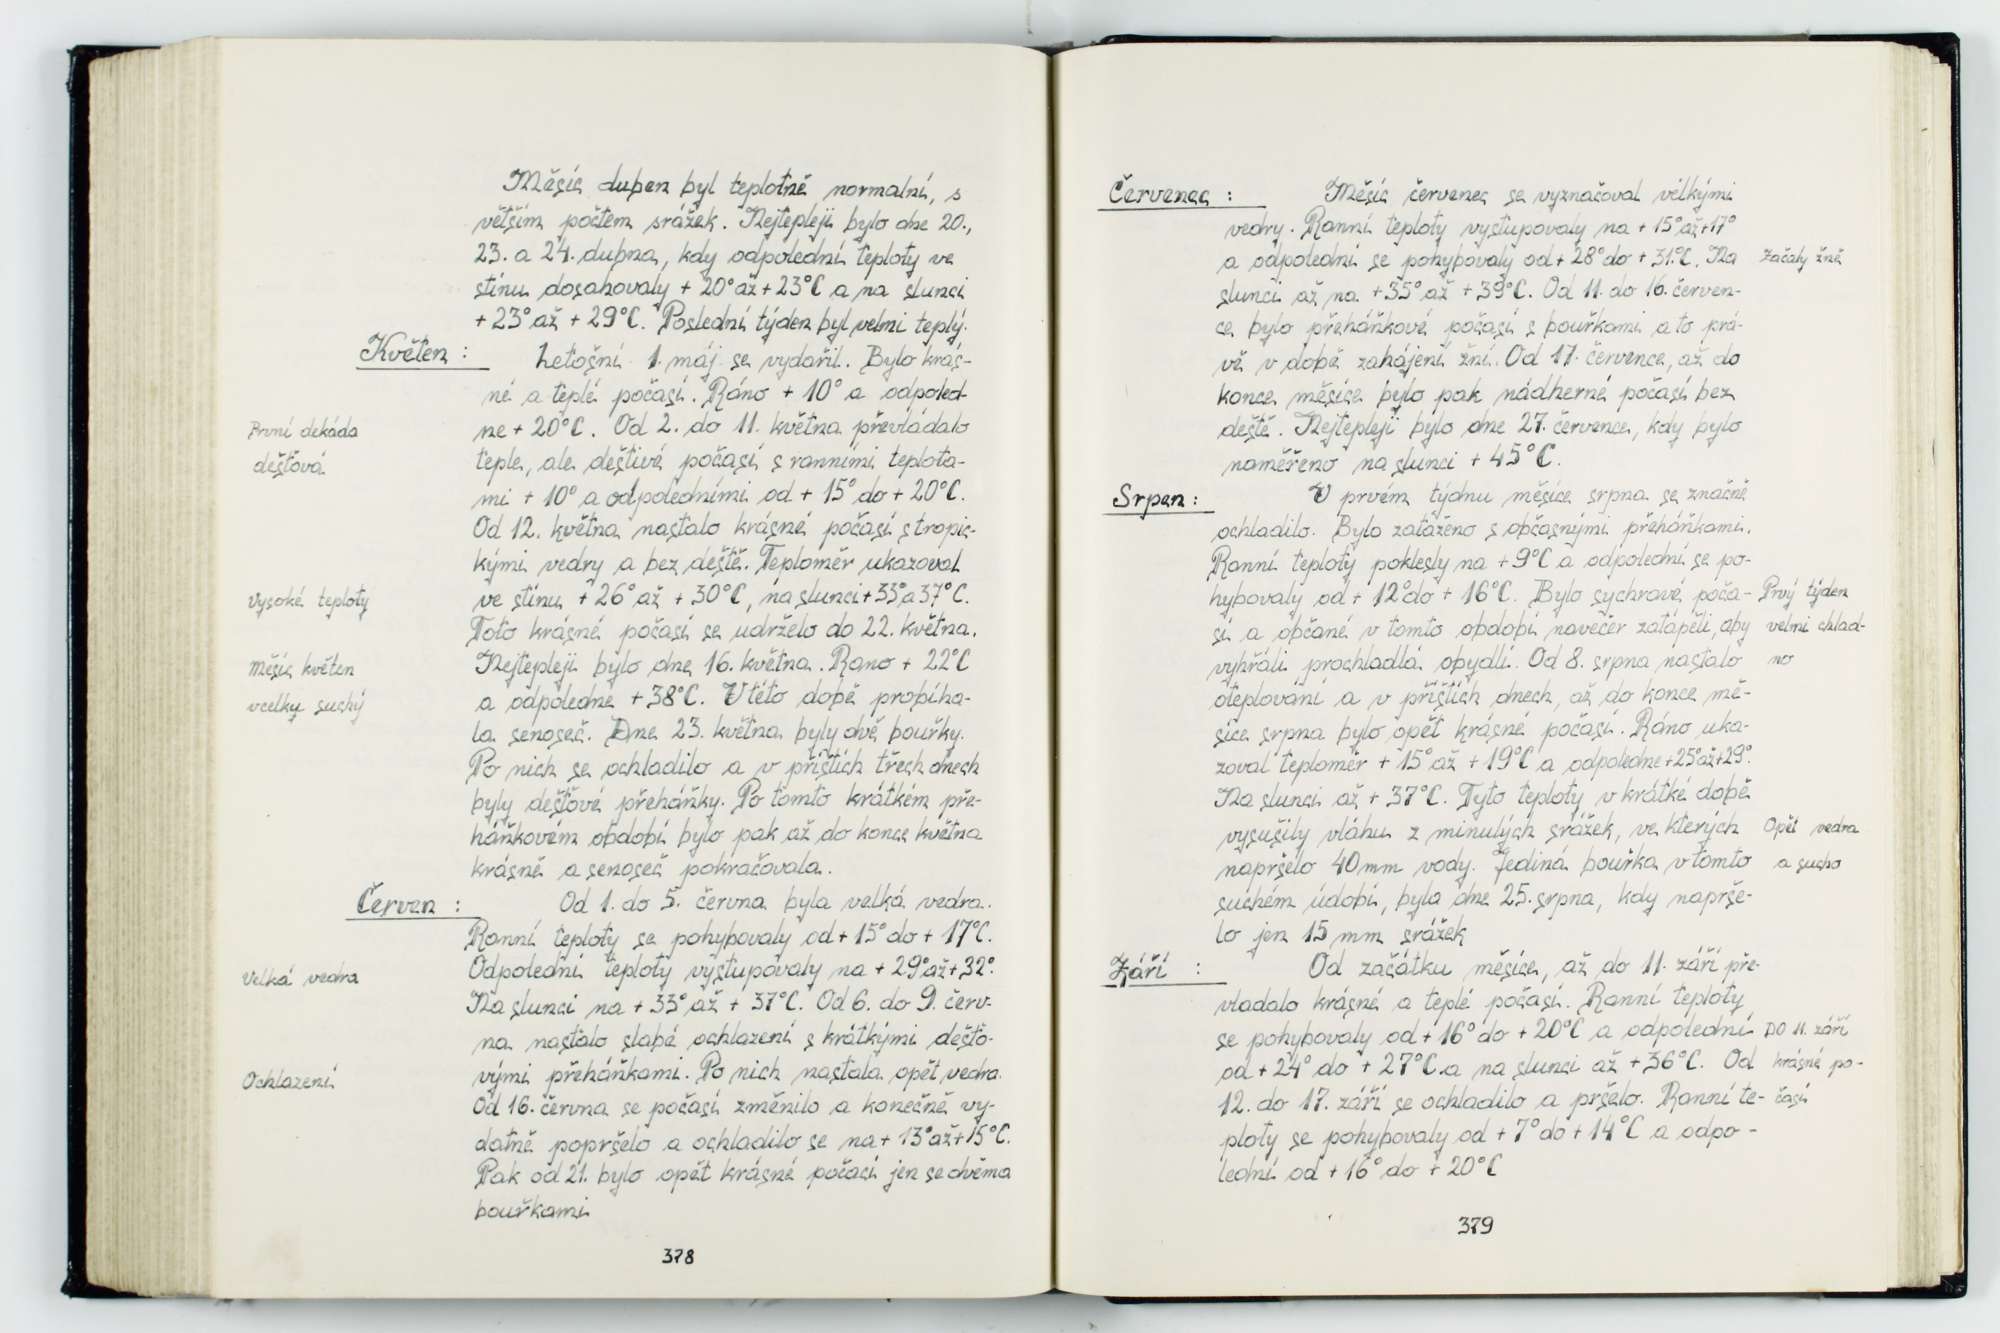 Měsíc duben byl teplotně normalní, s
větším počtem srážek. Nejtepleji bylo dne 20.,
23. a 24. dubna, kdy odpolední teploty ve
stínu dosahovaly + 20° až + 23°C a na slunci
+ 23° až + 29°C. Poslední týden byl velmi teplý.
Květen :
Letošní 1. máj se vydařil. Bylo krás-
né a teplé počasí. Ráno + 10° a odpoled-
ne + 20°C. Od 2. do 11. května převládalo
První dekáda
deštová
teple, ale deštivé počasí s ranními teplota-
mi + 10° a odpoledními od + 15° do + 20°C.
Od 12. května nastalo krásné počasí s tropic-
kými vedry a bez deště. Teploměr ukazoval
Vysoké teploty
ve stínu + 26° až + 30°C, na slunci + 33° a 37°C.
Toto krásné počasí se udrželo do 22. května.
Měsíc květen
vcelku suchý
Nejtepleji bylo dne 16. května. Rano + 22°C
a odpoledne + 38°C. V této době probíha-
la senoseč. Dne 23. května byly dvě bouřky.
Po nich se ochladilo a v příštích třech dnech
byly deštové přeháňky. Po tomto krátkém pře-
háňkovém období bylo pak až do konce května
krásně a senoseč pokračovala.
Červen :
Od 1. do 5. června byla velká vedra.
Ranní teploty se pohybovaly od + 15° do + 17°C.
Velká vedra
Odpolední teploty vystupovaly na + 29° až + 32°.
Na slunci na + 33° až + 37°C. Od 6. do 9. červ-
na nastalo slabé ochlazení s krátkými dešťo-
Ochlazení
vými přeháňkami. Po nich nastala opět vedra.
Od 16. června se počasí změnilo a konečně vy-
datně popršelo a ochladilo se na + 13° až + 15°C.
Pak od 21. bylo opět krásné počasí jen se dvěma
bouřkami
378
Červenec :
Měsíc červenec se vyznačoval velkými
vedry. Ranní teploty vystupovaly na + 15° až + 17°
a odpolední se pohybovaly od + 28° do + 31°C. Na
Začaly žně
slunci až na + 35° až + 39°C. Od 11. do 16. červen-
ce bylo přeháňkové počasí s bouřkami a to prá-
vě v době zahájení žní. Od 17. července, až do
konce měsíce bylo pak nádherné počasí bez
deště. Nejtepleji bylo dne 27. července, kdy bylo
naměřeno na slunci + 45°C.
Srpen :
V prvém týdnu měsíce srpna se značně
ochladilo. Bylo zataženo s občasnými přeháňkami.
Ranní teploty poklesly na + 9°C a odpolední se po-
hybovaly od + 12° do + 16°C. Bylo sychravé poča-
sí a občané v tomto období navečer zatápěli, aby
vyhřáli prochladlá obydlí. Od 8. srpna nastalo
Prvý týden
velmi chlad-
no
oteplování a v příštích dnech, až do konce mě-
síce srpna bylo opět krásné počasí. Ráno uka-
zoval teploměr + 15° až + 19°C a odpoledne + 25° až + 29°.
Na slunci až + 37°C. Tyto teploty v krátké době
vysušily vláhu z minulých srážek, ve kterých
napršelo 40 mm vody. Jediná bouřka v tomto
Opět vedra
a sucho
suchém údobí, byla dne 25. srpna, kdy naprše-
lo jen 15 mm srážek
Září :
Od začátku měsíce, až do 11. září pře-
vladalo krásné a teplé počasí. Ranní teploty
se pohybovaly od + 16° do + 20°C a odpolední
od + 24° do + 27°C a na slunci až + 36°C. Od
Do 11. září
krásné po-
časí
12. do 17. září se ochladilo a pršelo. Ranní te-
ploty se pohybovaly od + 7° do + 14°C a odpo-
lední od + 16° do + 20°C
379